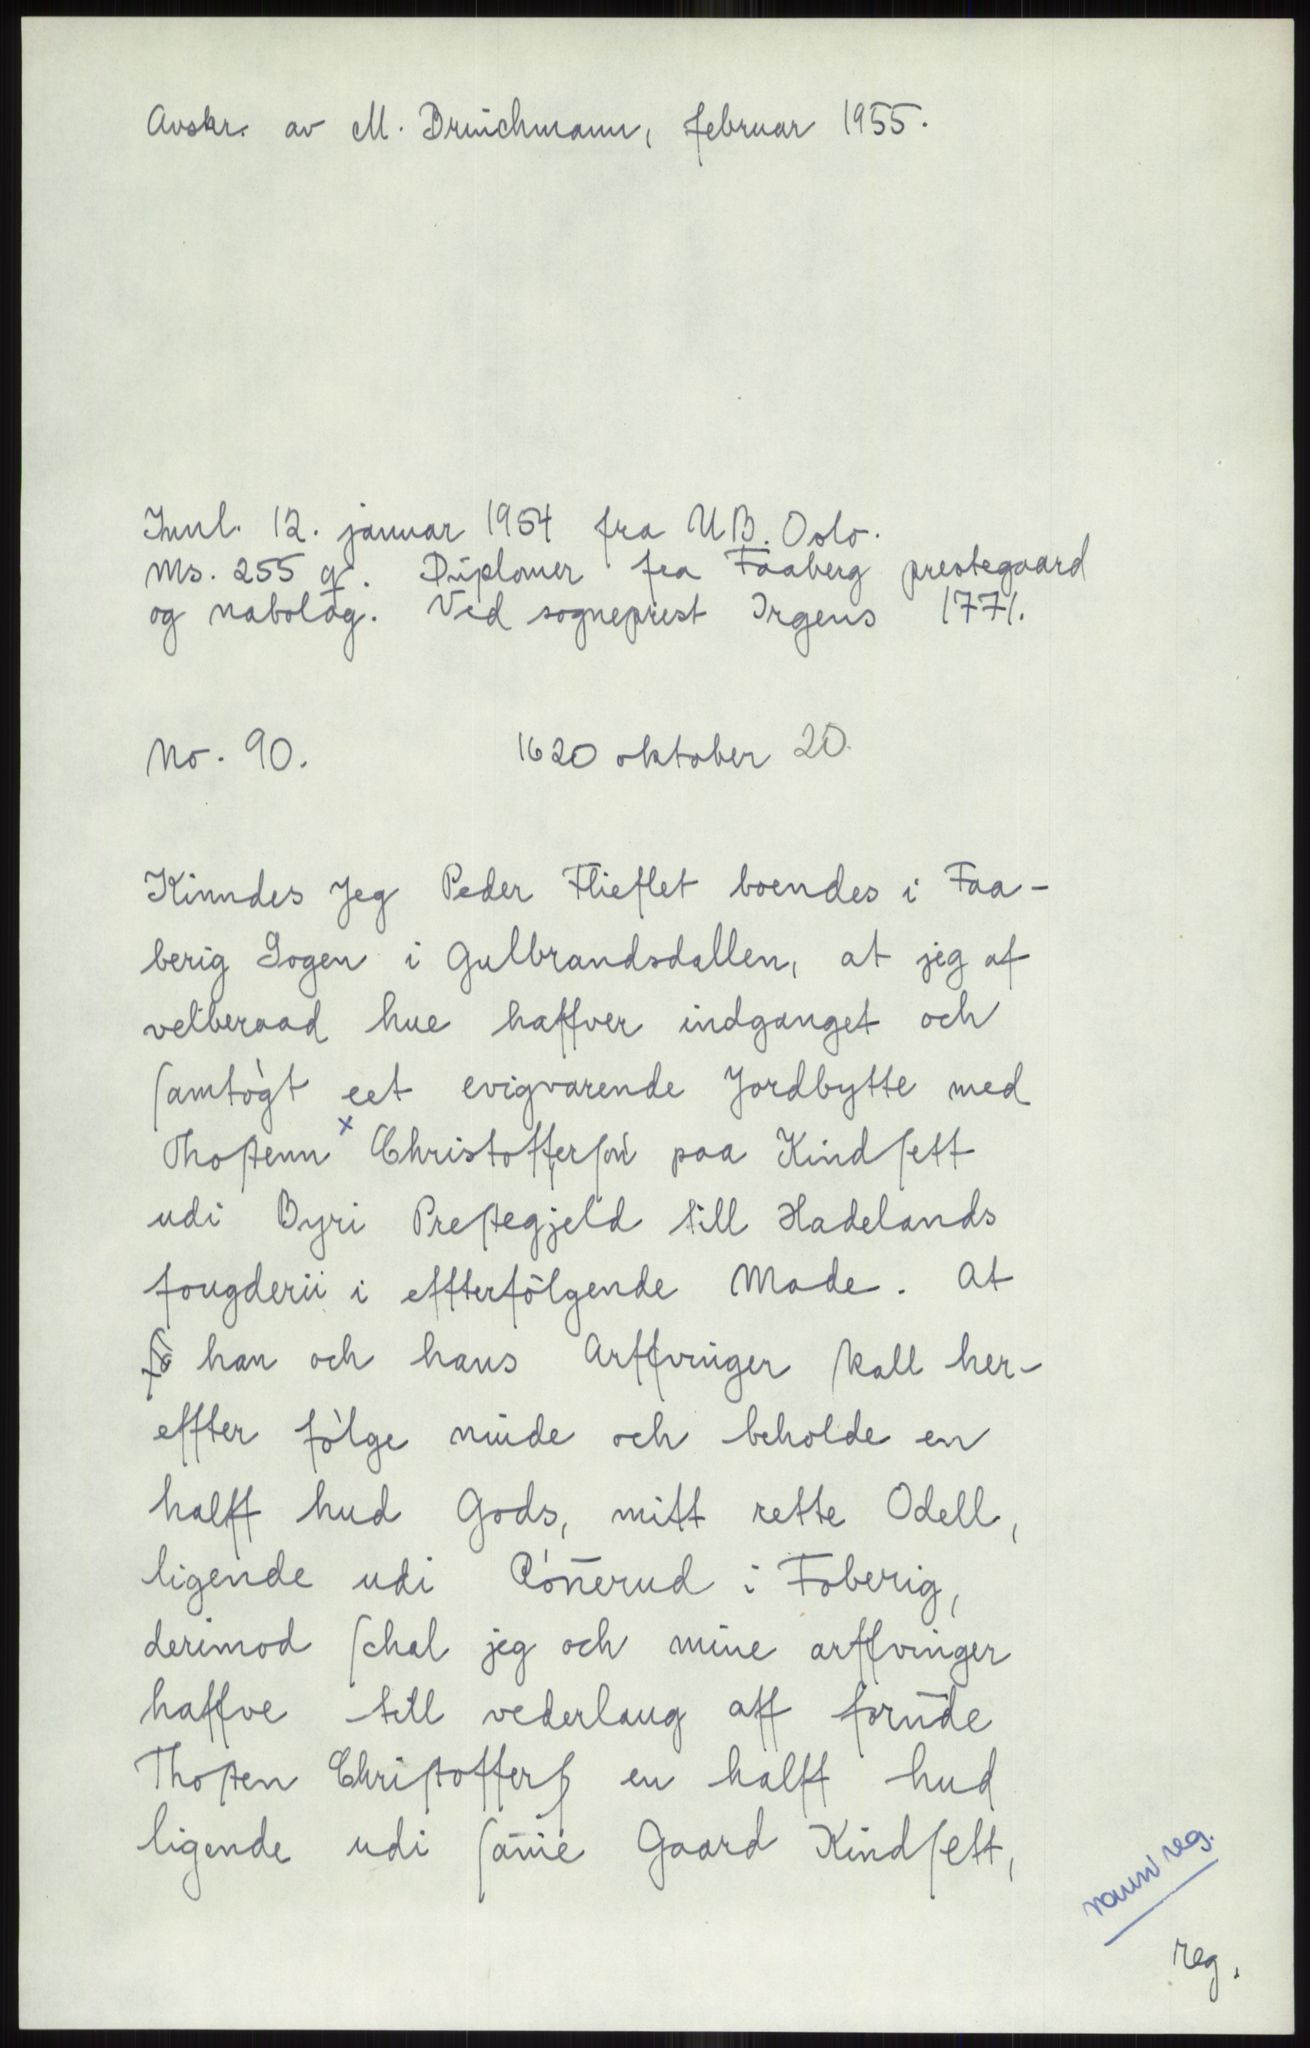 Avskr. av M. Brinchmann, februar 1955.
Innl. 12. januar 1954 fra U.B. Oslo.
Ms. 255 q. Diplomer fra Faaberg prestegaard
og nabolag. Ved sogneprest Irgens 1771.
No. 90. 1620 oktober 20.
Kinndes Jeg Peder Flieflet boendes i Faa-
berig Sogen i Gulbrandsdallen, at jeg af
velberaad hue haffver indganget och
ſamtögt eet evigvarende Jordbytte med
Thoſtenn x Christofferſön paa Kindſett
udi Byri Preſtegjeld till Hadelands
fougderii i effterfölgende Made. At
han och hans Arffvinger skall her-
effter fölge niude och beholde en
halff hud Gods, mitt rette Odell,
ligende udi Rön̄erud i Foberig,
derimod ſchal jeg och mine arffvinger
haffve till vederlaug aff forn̄de
Thoſten Chriſtofferſ en halff hud
ligende udi ſam̄e Gaard Kindſett,
navn reg.
reg.